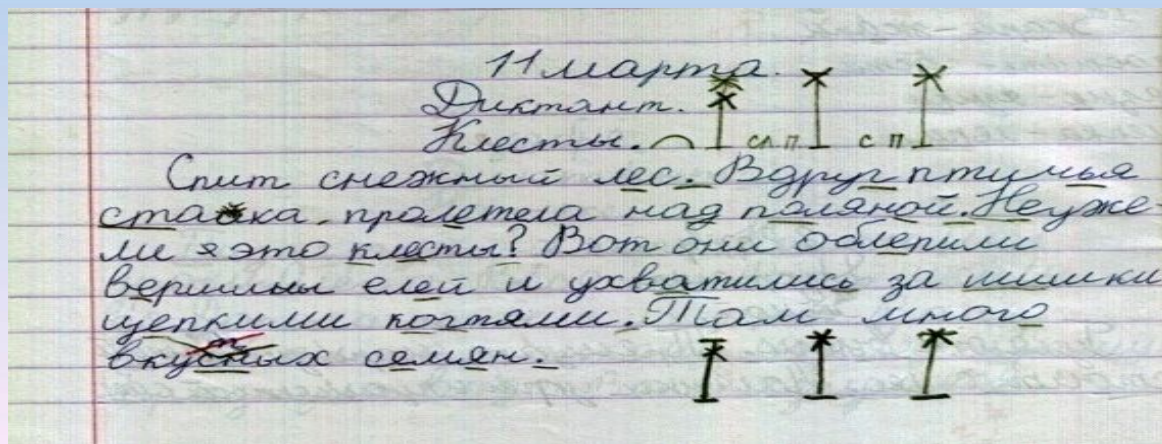 11 марта.
Диктант.
Клесты. сл п с п
Спит снежный лес. Вдруг птичья
стайка пролетела над поляной. Неуже-
ли это клесты? Вот они облепили
вершины елей и ухватились за шишки
цепкими когтями. Там много
вкусных семян.